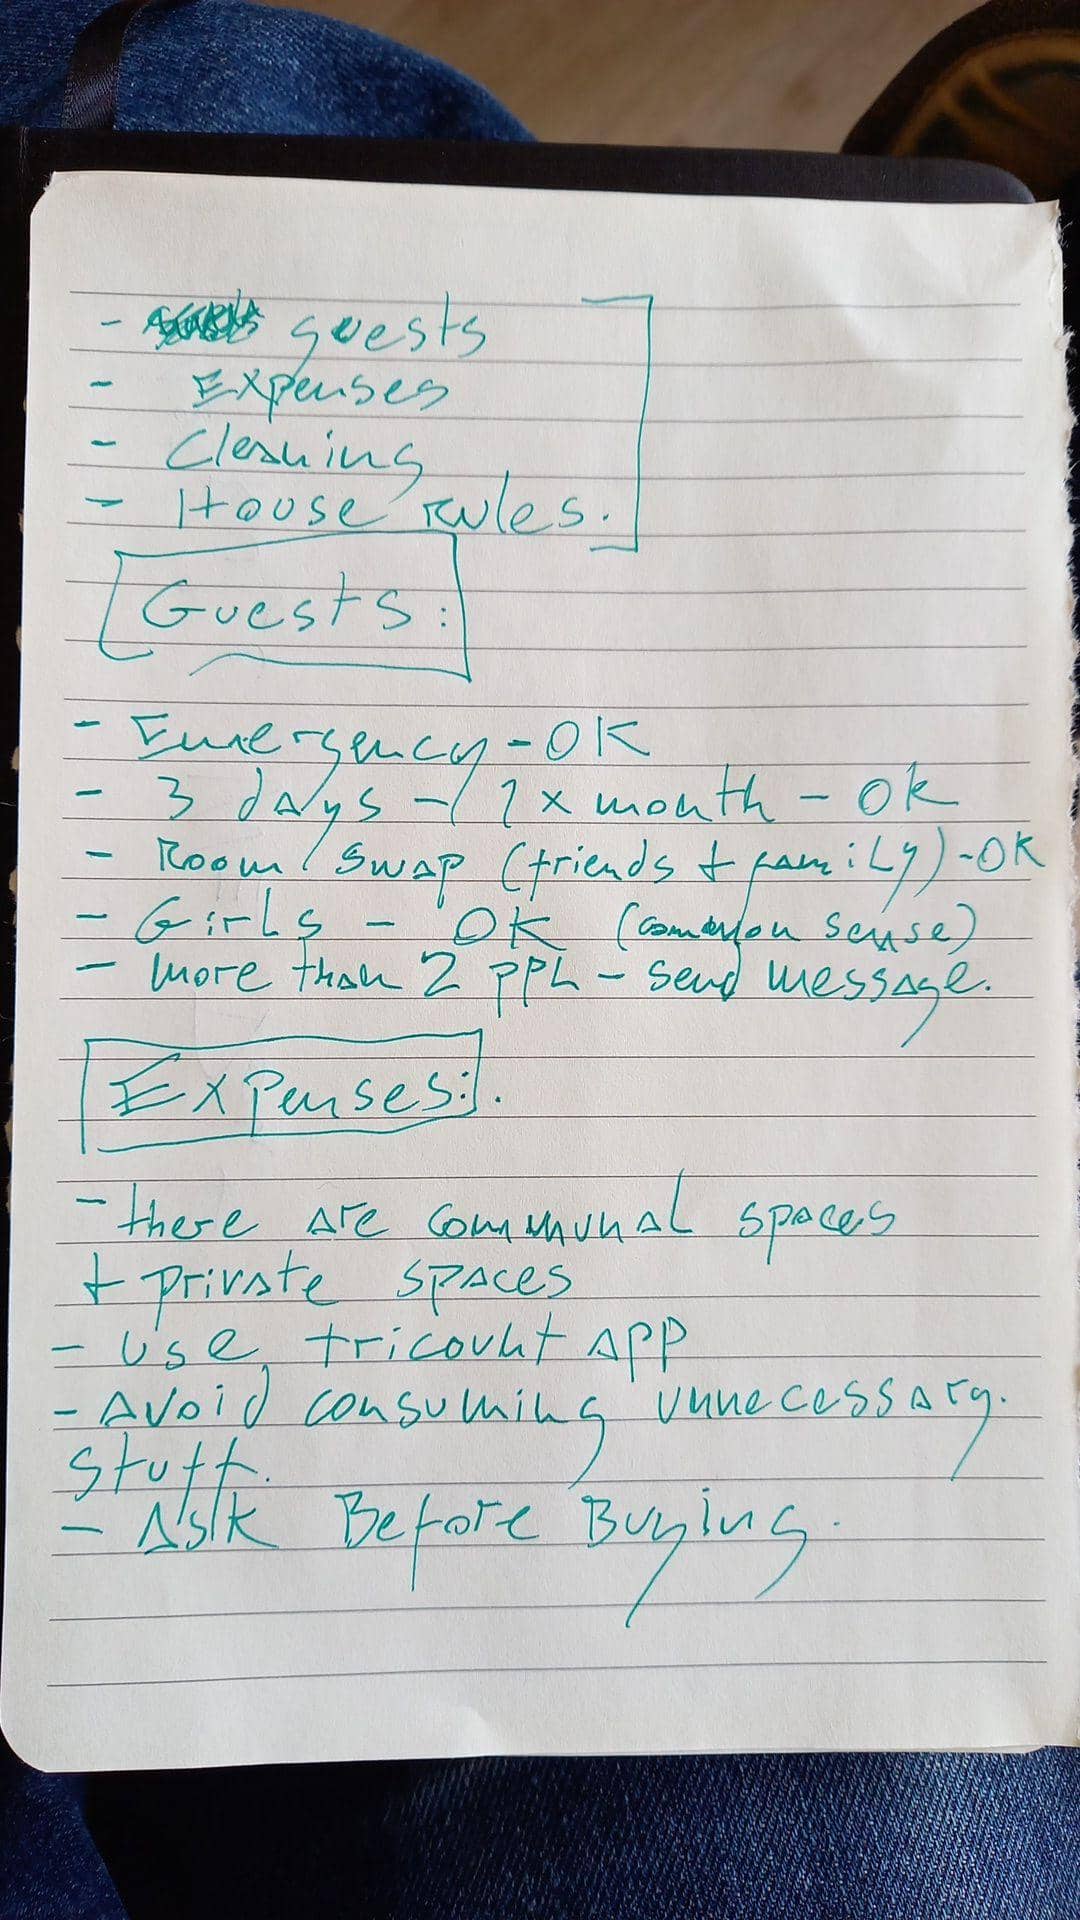 - guests
- Expenses
- Cleaning
- House rules.
Guests:
- Emergency - OK
- 3 days - / 1 x month - OK
- Room / swap (friends + family) - OK
- Girls - OK (common sense)
- more than 2 PPL - send message.
Expenses:.
- there are communal spaces
+ private spaces
- use tricount APP
- Avoid consuming unnecessary.
stuff.
- Ask Before Buying.